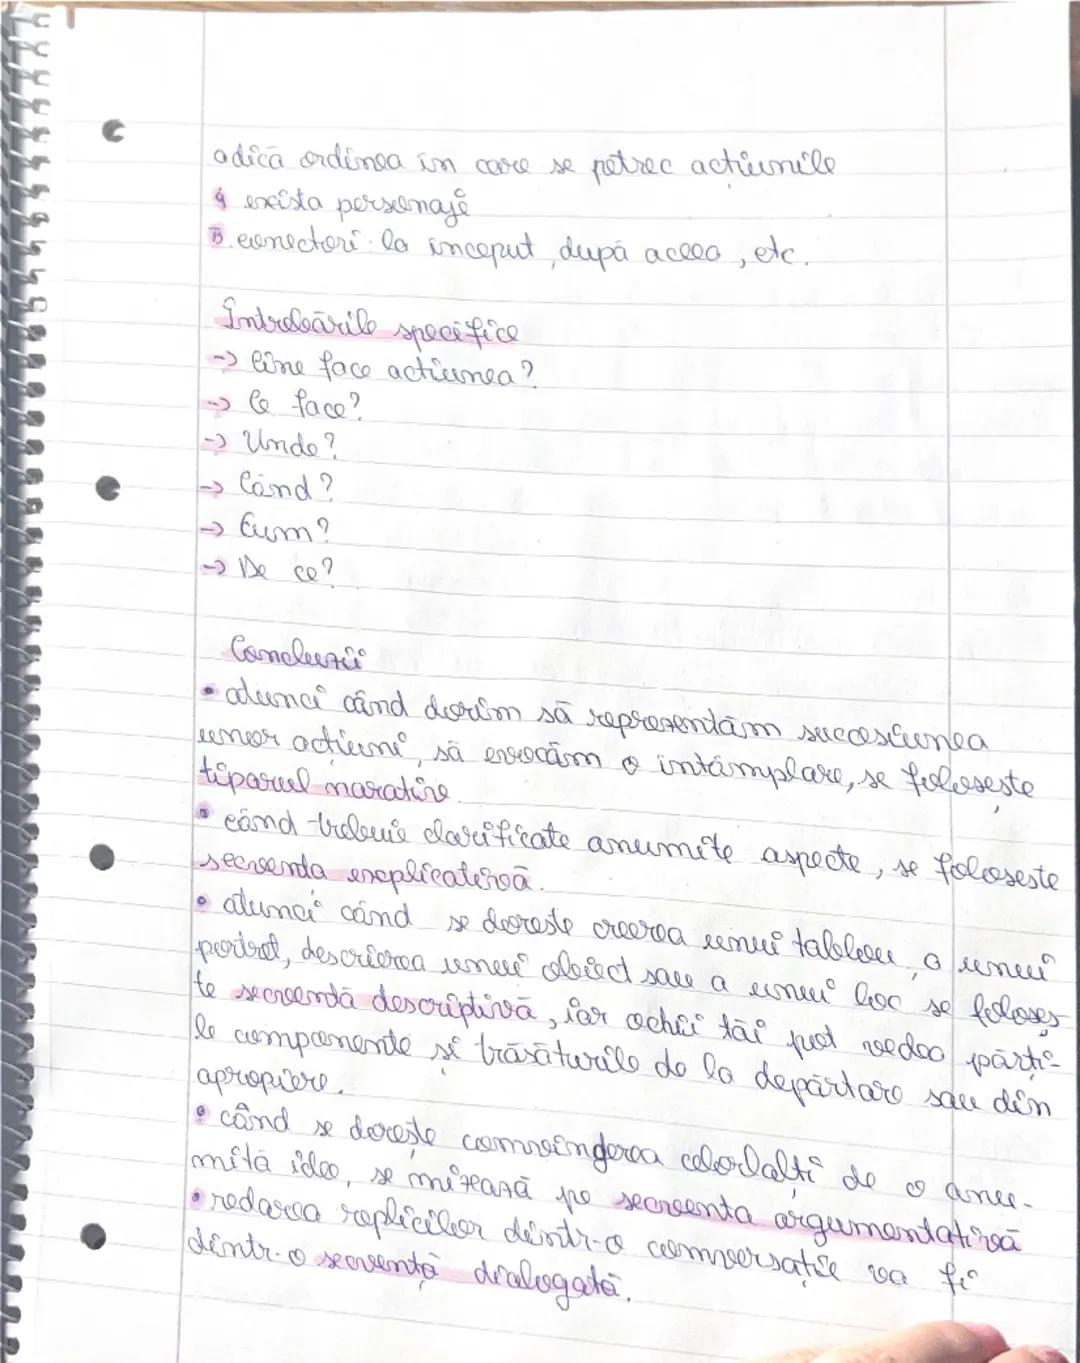 adică ordinea în care se petrec acțiunile
4 exista personaje
5. conectori: la început, după aceea, etc.
Întrebările specifice
-> Cine face acțiunea?
-> Ce face?
-> Unde?
-> Când?
-> Cum?
-> De ce?
Concluzii
• atunci când dorim să reprezentăm succesiunea
unor acțiuni, să evocăm o întâmplare, se folosește
tiparul narativ.
• când trebuie clarificate anumite aspecte, se foloseste
secvența explicativă.
• atunci când se doreste creerea unui tablou, a unui
portret, descrierea unui obiect sau a unui loc se foloseș
te secvență descriptivă, iar ochii tăi pot vedea părți-
le componente și trăsăturile de la depărtare sau din
apropiere.
• când se dorește convingerea celorlalți de o anu-
mită idee, se mizează pe secvența argumentativă
• redarea replicilor dintr-o conversație va fi
dintr-o secvență dialogată.